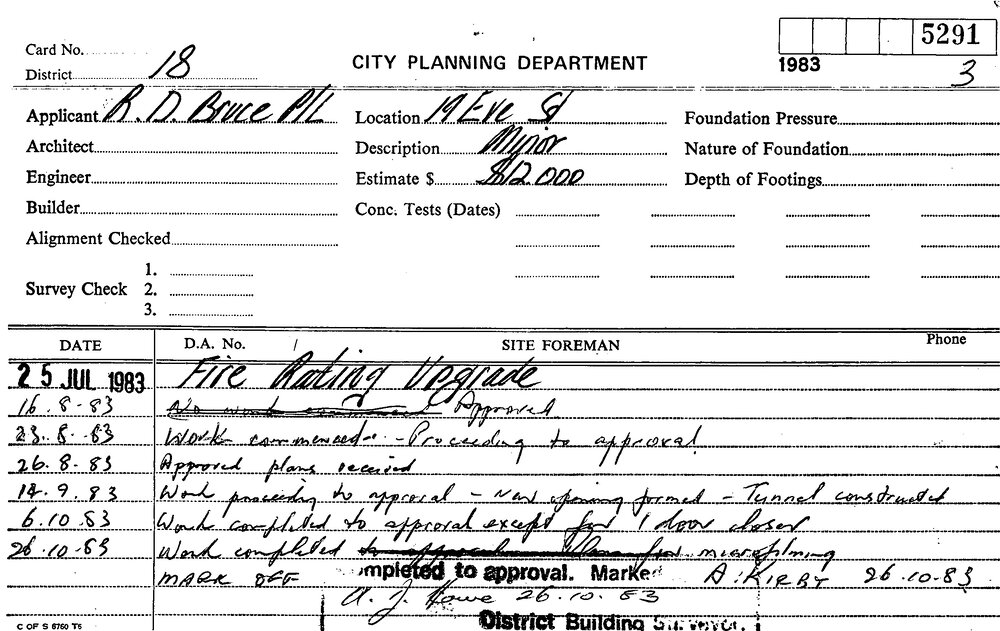 5291
Card No.
CITY PLANNING DEPARTMENT
1983
3
District 18
Applicant R. D. Bruce P/L Location 19 Eve St Foundation Pressure
Architect Description Minor Nature of Foundation
Engineer Estimate $ $12.000 Depth of Footings
Builder Conc. Tests (Dates)
Alignment Checked
1.
Survey Check 2.
3.
DATE D.A. No. SITE FOREMAN Phone
25 JUL 1983 Fire Rating Upgrade
16.8.83 No work commenced Approved
23.8.83 Work commenced - Proceeding to approval
26.8.83 Approved plans received
14.9.83 Work proceeding to approval - New opening formed - Tunnel constructed
6.10.83 Work completed to approval except for 1 door closer
26.10.83 Work completed to microfilming
MARK OFF mpleted to approval. Marke A. KIRBY 26.10.83
A. J. 26.10.83
District Building Surveyor.
C OF S 6760 T6